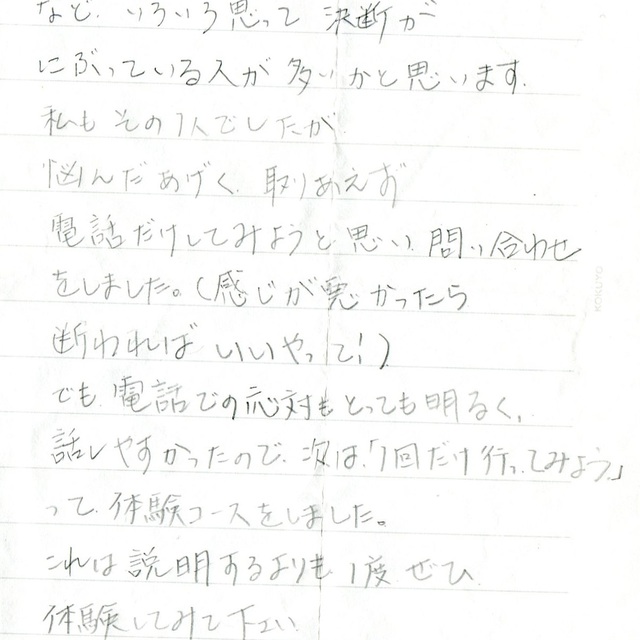 など、いろいろ思って決断が
にぶっている人が多いかと思います。
私もその1人でしたが
悩んだあげく、取りあえず
電話だけしてみようと思い、問い合わせ
をしました。(感じが悪かったら
断わればいいやって!)
でも、電話での応対もとっても明るく、
話しやすかったので、次は、「1回だけ行ってみよう。」
って、体験コースをしました。
これは説明するよりも1度、ぜひ
体験してみて下さい。
KOKUYO